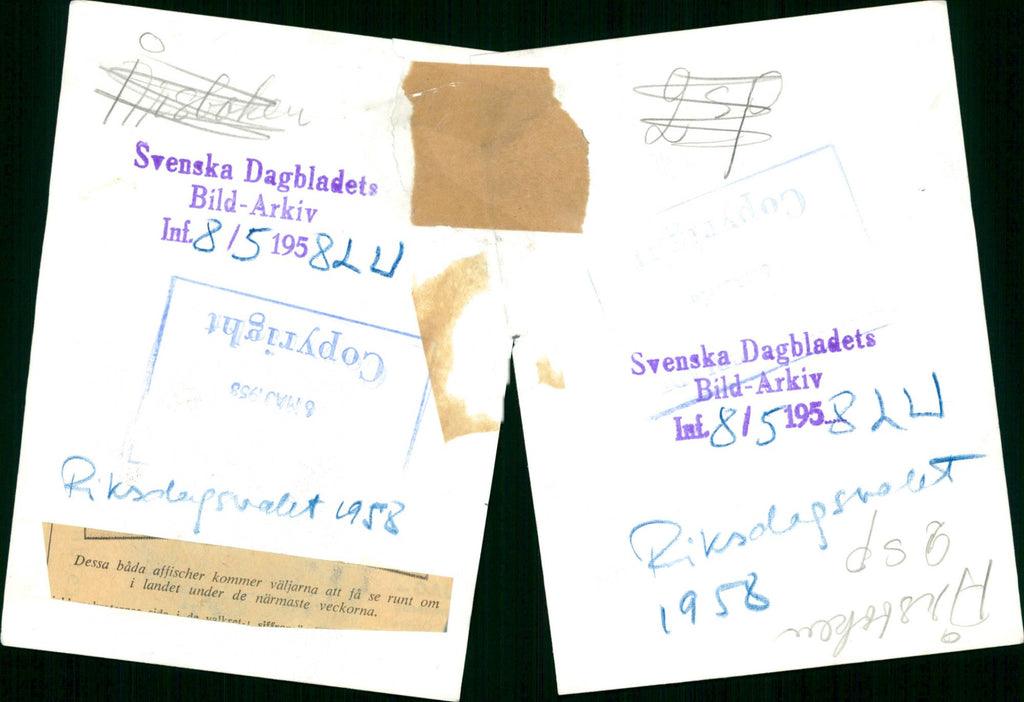 Årsboken
Svenska Dagbladets
Bild-Arkiv
Inf. 8/5 1958 LU
Copyright
8 MAJ 1958
Riksdagsvalet 1958
Dessa båda affischer kommer väljarna att få se runt om
i landet under de närmaste veckorna.
2 sp
Copyright
Svenska Dagbladets
Bild-Arkiv
Inf. 8/5 1958 LU
Riksdagsvalet
1958
2 sp
Årsboken